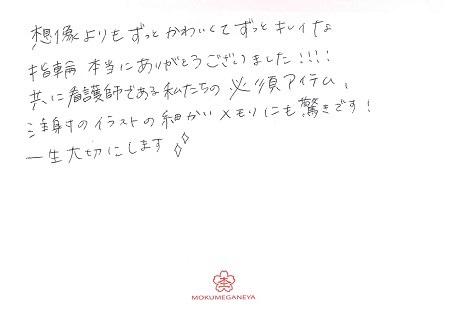 想像よりもずっとかわいくてずっとキレイな
指輪 本当にありがとうございました!!!!
共に看護師である私たちの必須アイテム、
注射のイラストの細かいメモリにも驚きです!
一生大切にします
MOKUMEGANEYA